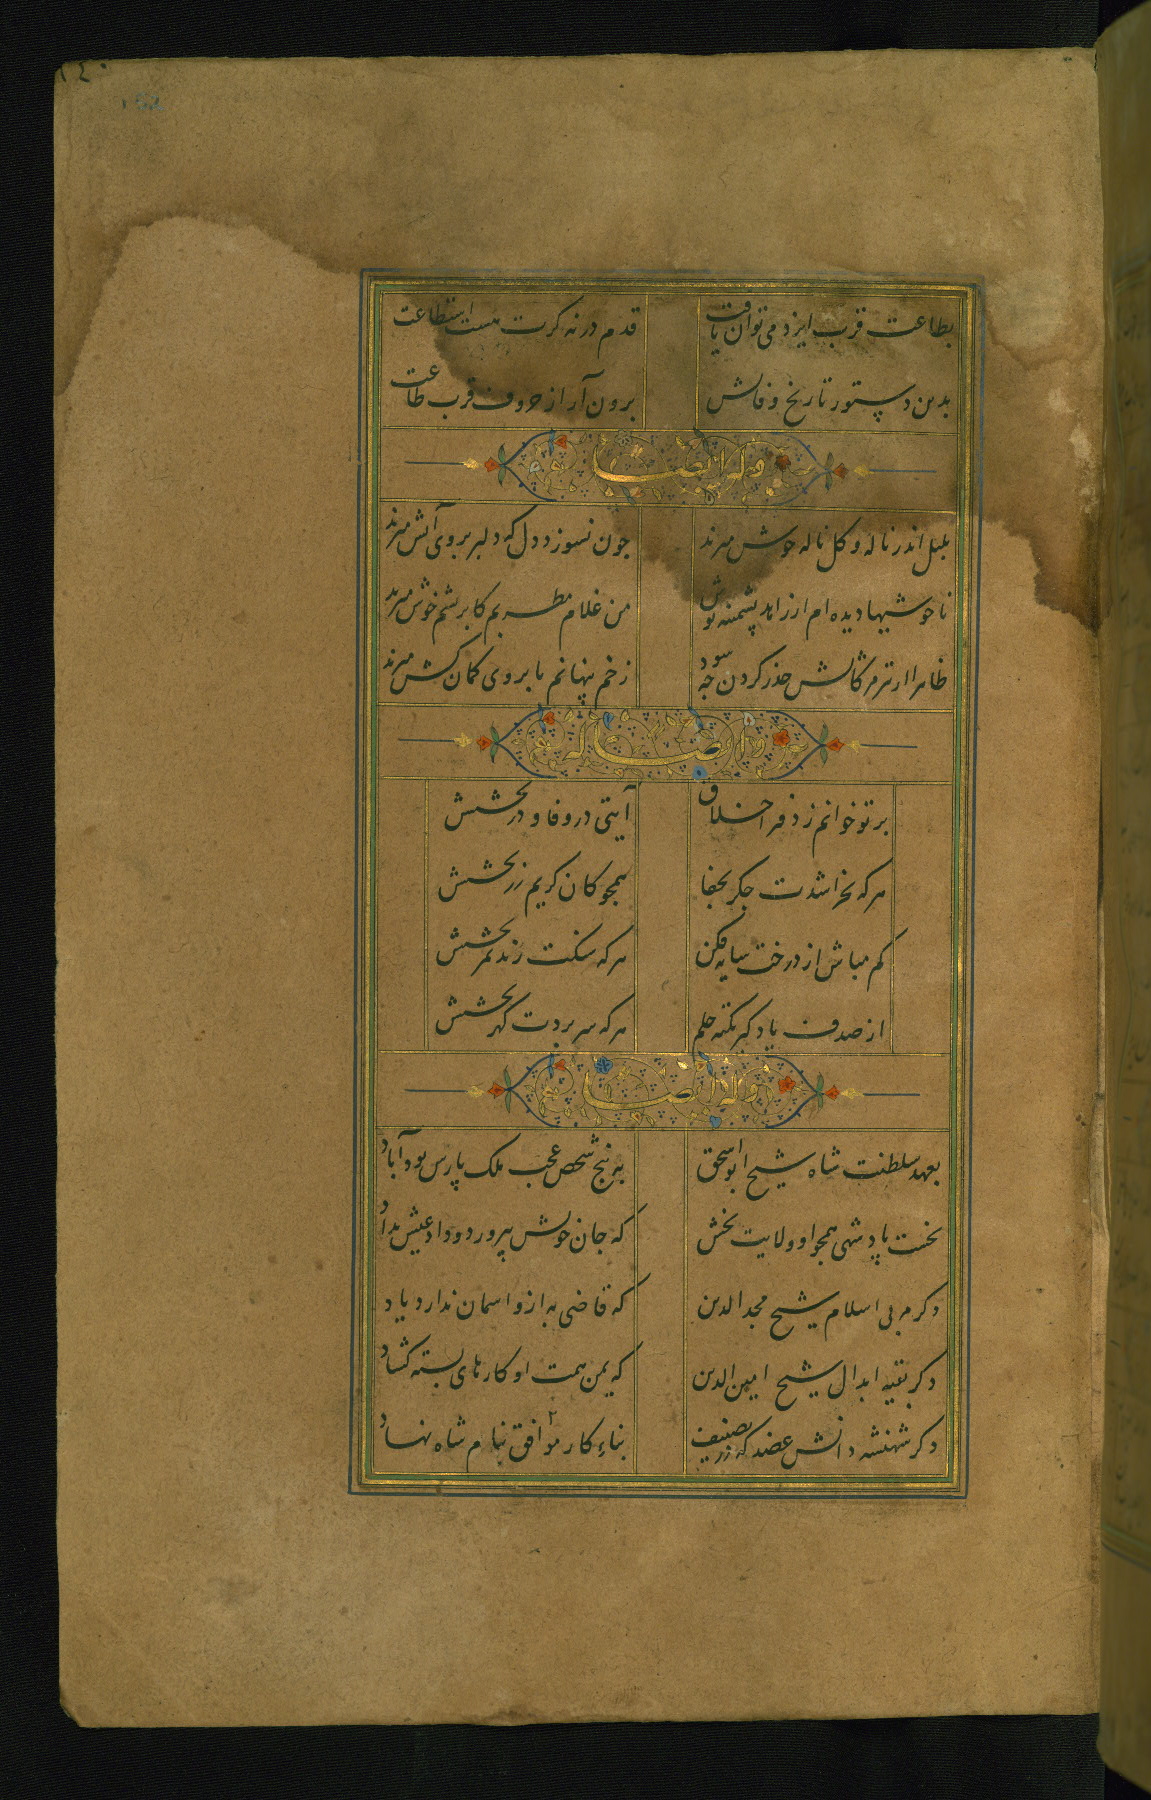 ۱٤۰
بطاعت قرب ایزد می توان یافت قدم در نه کرت هست استطاعت
بدین دستور تاریخ وفاتش برون آر از حروف قرب طاعت
وله ایضا
بلبل اندر ناله و کل ناله خوش میزند چون نسوزد دل که دلبر بروی آتش میزند
ناخوشیها دیده ام از زاهد پشمینه پوش من غلام مطربم کابریشم خوش میزند
ظاهرا از تیر مژکانش حذر کردن چه سود زخم پنهانم بابروی کمان کش میزند
و ایضا له
بر تو خوانم ز دفتر اخلاق آیتی در وفا و در بخشش
هر که بخراشدت جکر بجفا همجو کان کریم زر بخشش
کم مباش از درخت سایه فکن هر که سنکت زند ثمر بخشش
از صدف یاد کیر نکته حلم هر که سر بردت کهر بخشش
وله ایضا
بعهد سلطنت شاه شیخ ابواسحق به پنج شخص عجب ملک پارس بود آباد
نخست پادشهی همجو او ولایت بخش که جان خویش بپرورد و داد عیش بداد
دکر مربی اسلام شیخ مجد الدین که قاضی به ازو اسمان ندارد یاد
دکر بقیه ابدال شیخ امین الدین که یمن همت او کارهای بسته کشاد
دکر شهنشه دانش عضد که در تصنیف بناء کار مواقف بنام شاه نهاد